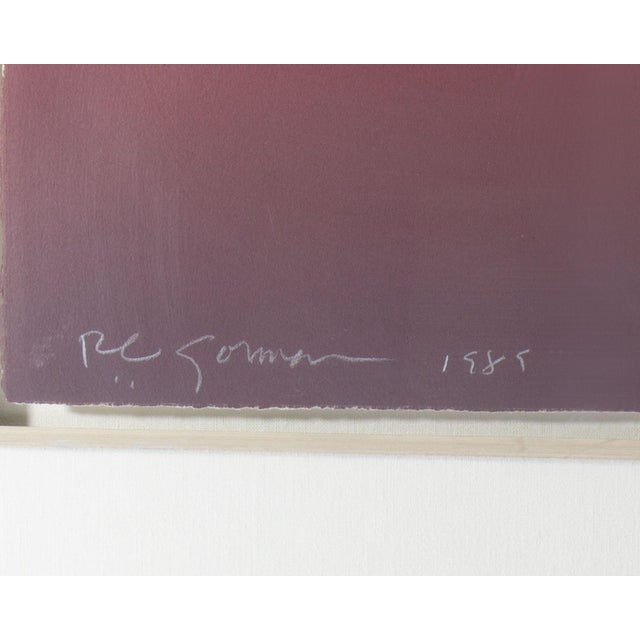 R.C. Gorman 1989